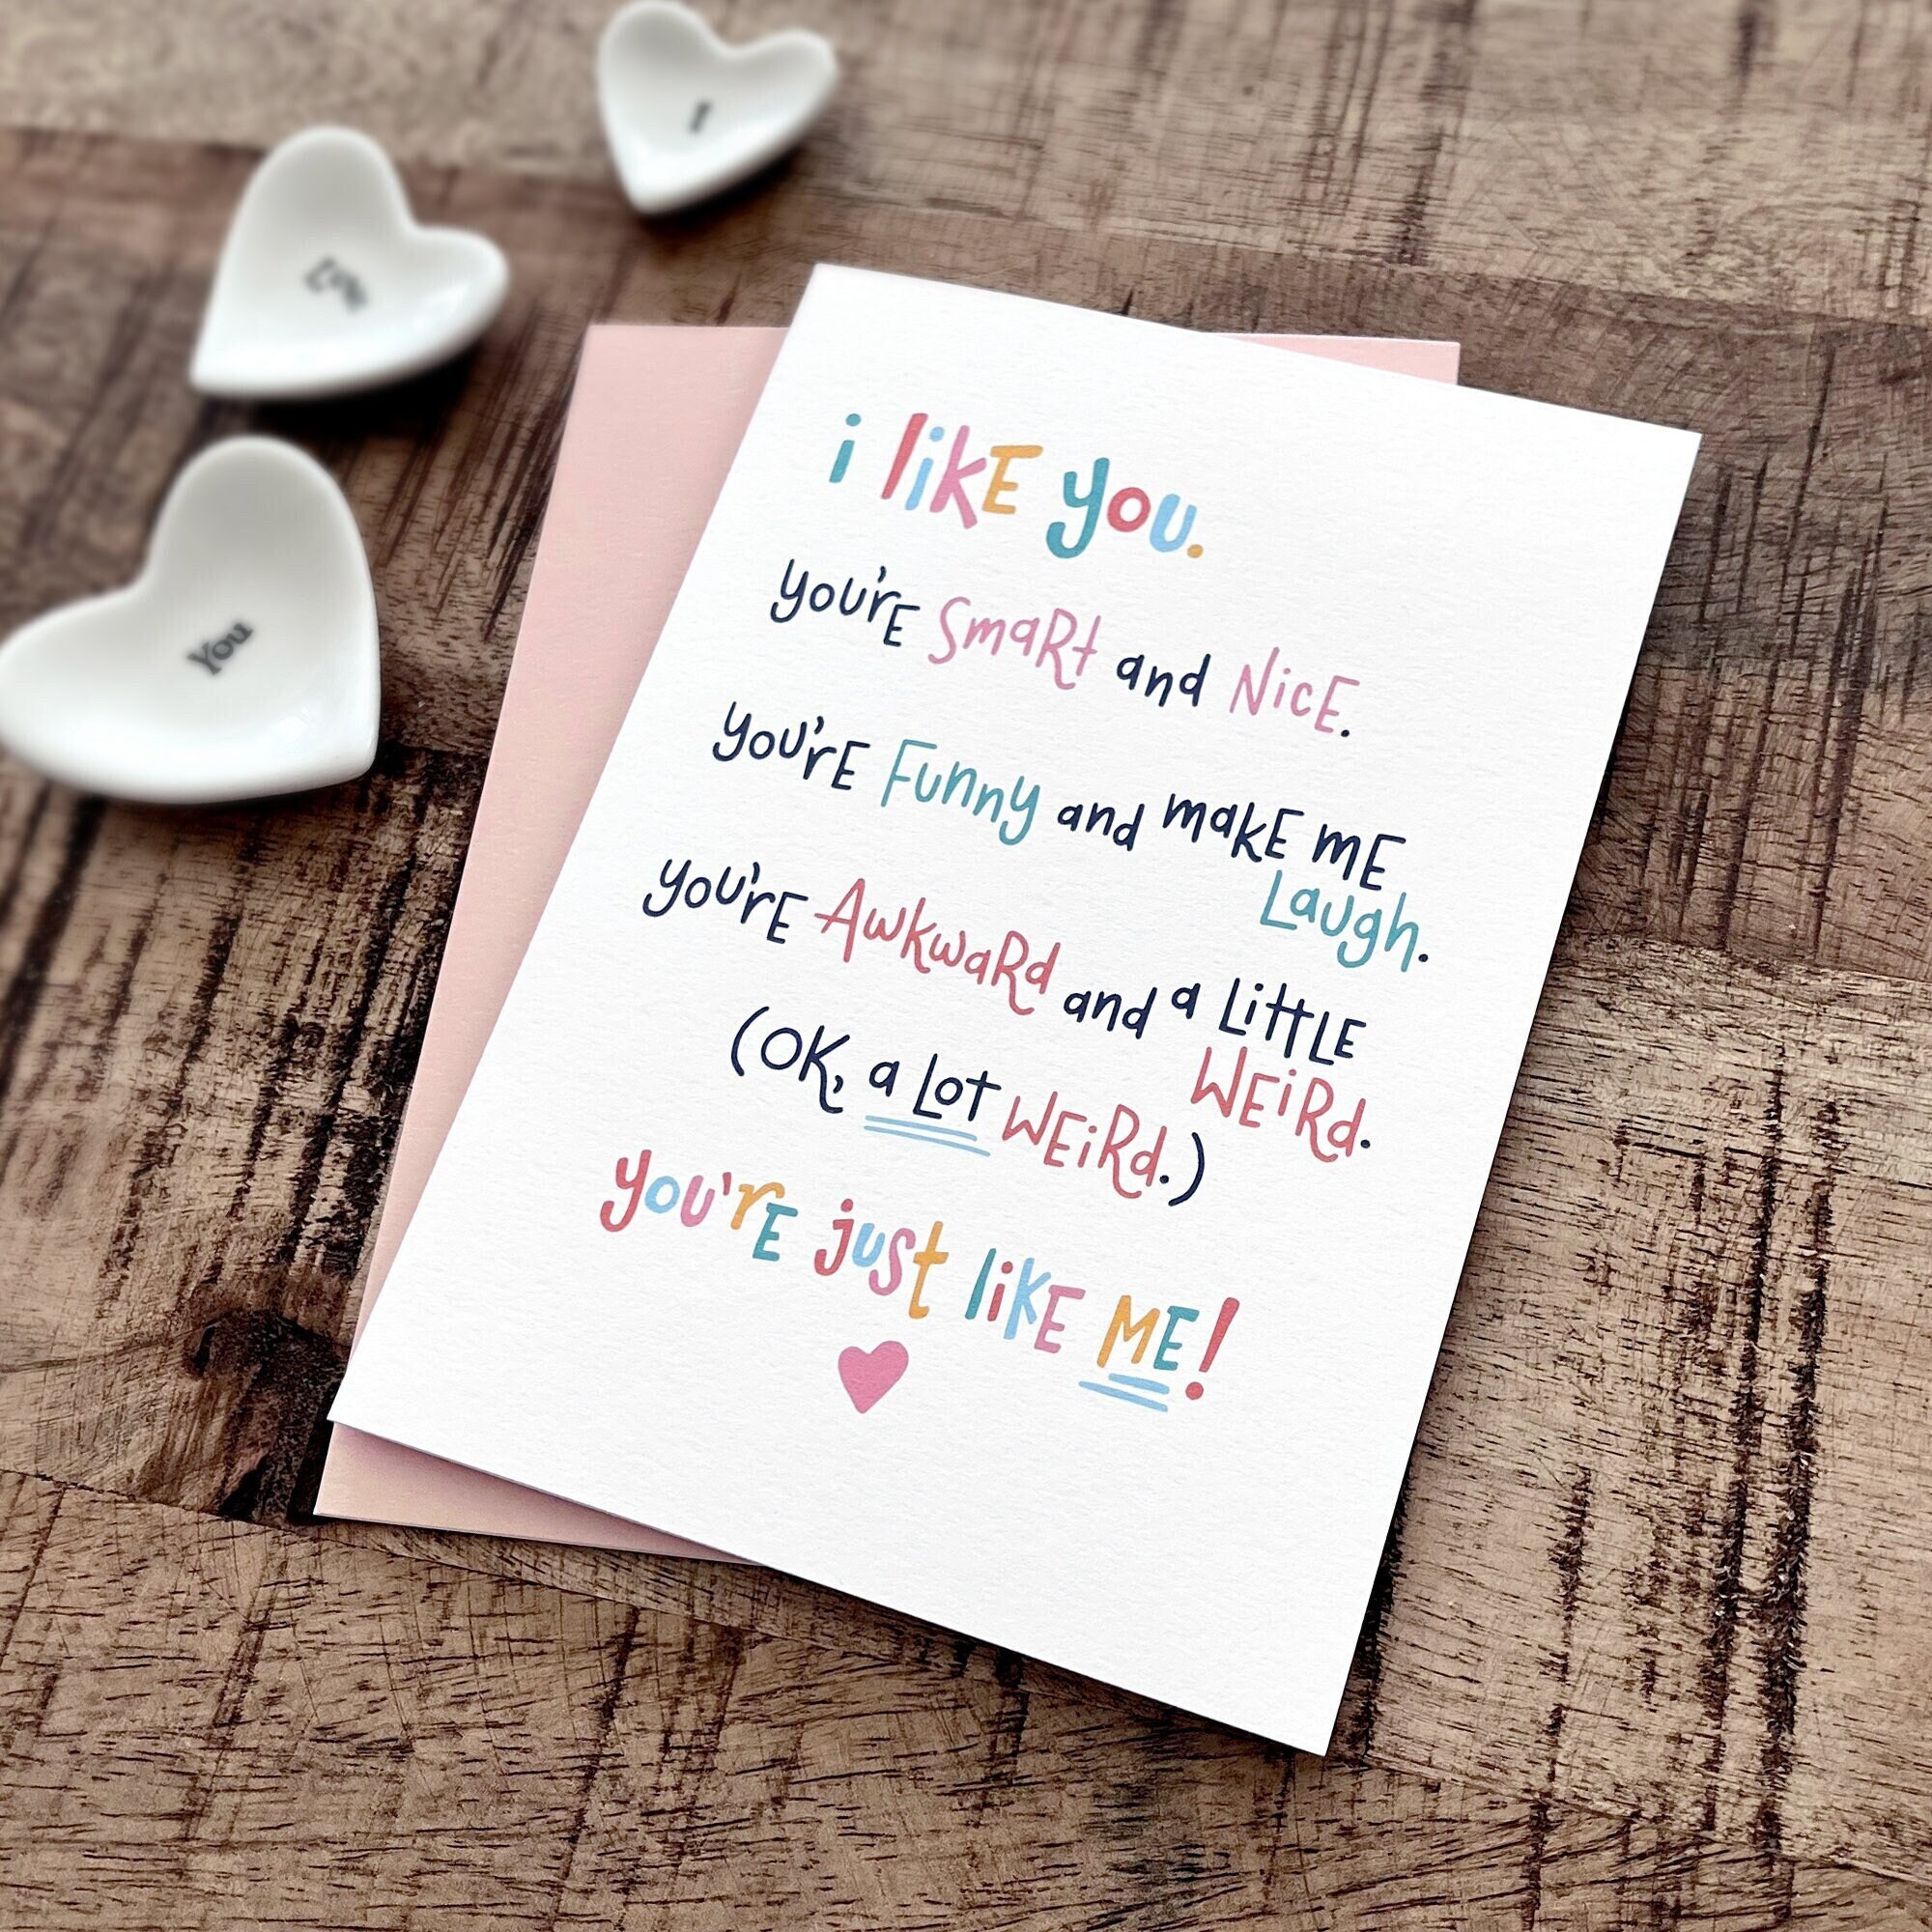 I
Love
You
i likE you.
you'rE SmaRt and NicE.
you'rE Funny and makE mE
Laugh.
you'rE AwkwaRd and a LittLE
WEiRd.
(OK, a Lot WEiRd.)
you'rE just likE ME!